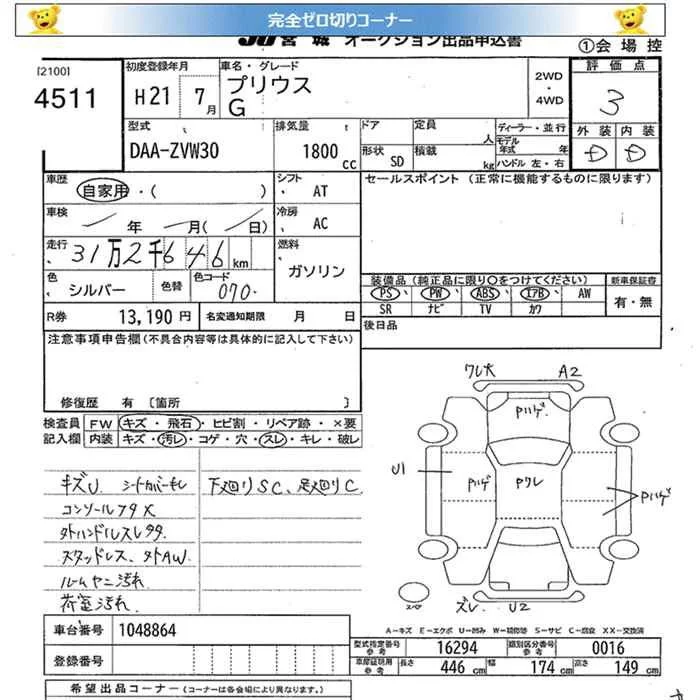 完全ゼロ切りコーナー
JU 宮城 オークション出品申込書
①会場控
[2100]
4511
初度登録年月
H21 7月
車名・グレード
プリウス
G
2WD
・
4WD
評価点
3
型式
DAA-ZVW30
排気量 t
1800 cc
ドア
形状 SD
定員 人
積載 kg
ディーラー・並行
モデル年式 年
ハンドル 左・右
外装 内装
D D
車歴
自家用・( )
シフト AT
セールスポイント (正常に機能するものに限ります)
車検 年 月( 日)
冷房 AC
走行 31万2千646km
燃料
ガソリン
色 シルバー 色替
色コード 070
装備品(純正品に限り○をつけてください)
PS PW ABS エアB AW
SR ナビ TV カワ
新車保証書
有・無
R券 13,190円 名変通知期限 月 日
後日品
注意事項申告欄(不具合内容等は具体的に記入して下さい)
修復歴 有 〔箇所
検査員記入欄
FW キズ・飛石・ヒビ割・リペア跡・×要
内装 キズ・汚レ・コゲ・穴・スレ・キレ・破レ
キズU シートカバーモレ
コンソールフタX
タトハンドルスレ
スタッドレス、タトAW
ルームヤニ汚れ
荷室汚れ
下廻りSC、足廻りC
ワレ大 A2
Pハゲ
U1
Pハゲ
Pワレ
Pハゲ
ズレ U2
A-キズ E-エクボ U-凹み W-補修跡 S-サビ C-腐食 XX-交換済
車台番号 1048864
登録番号
型式指定番号 参考 16294
類別区分番号 参考 0016
車庫証明用 参考 長さ 446cm 幅 174cm 高さ 149cm
希望出品コーナー(コーナーは各会場により異なります。)